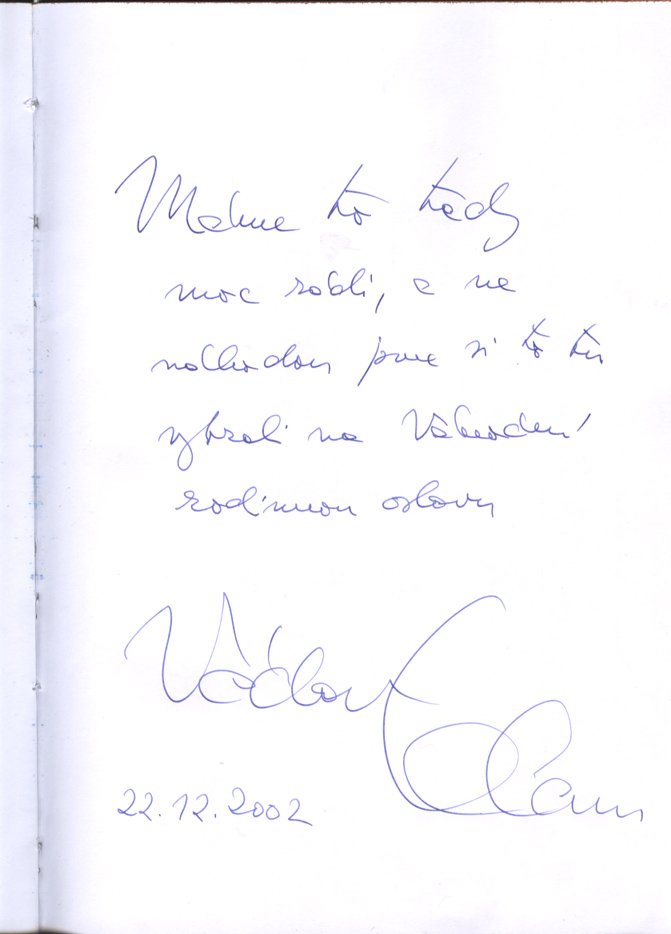 Máme to tady
moc rádi, a ne
náhodou jsme si to tu
vybrali na Vánoční
rodinnou oslavu
Václav Klaus
22.12.2002